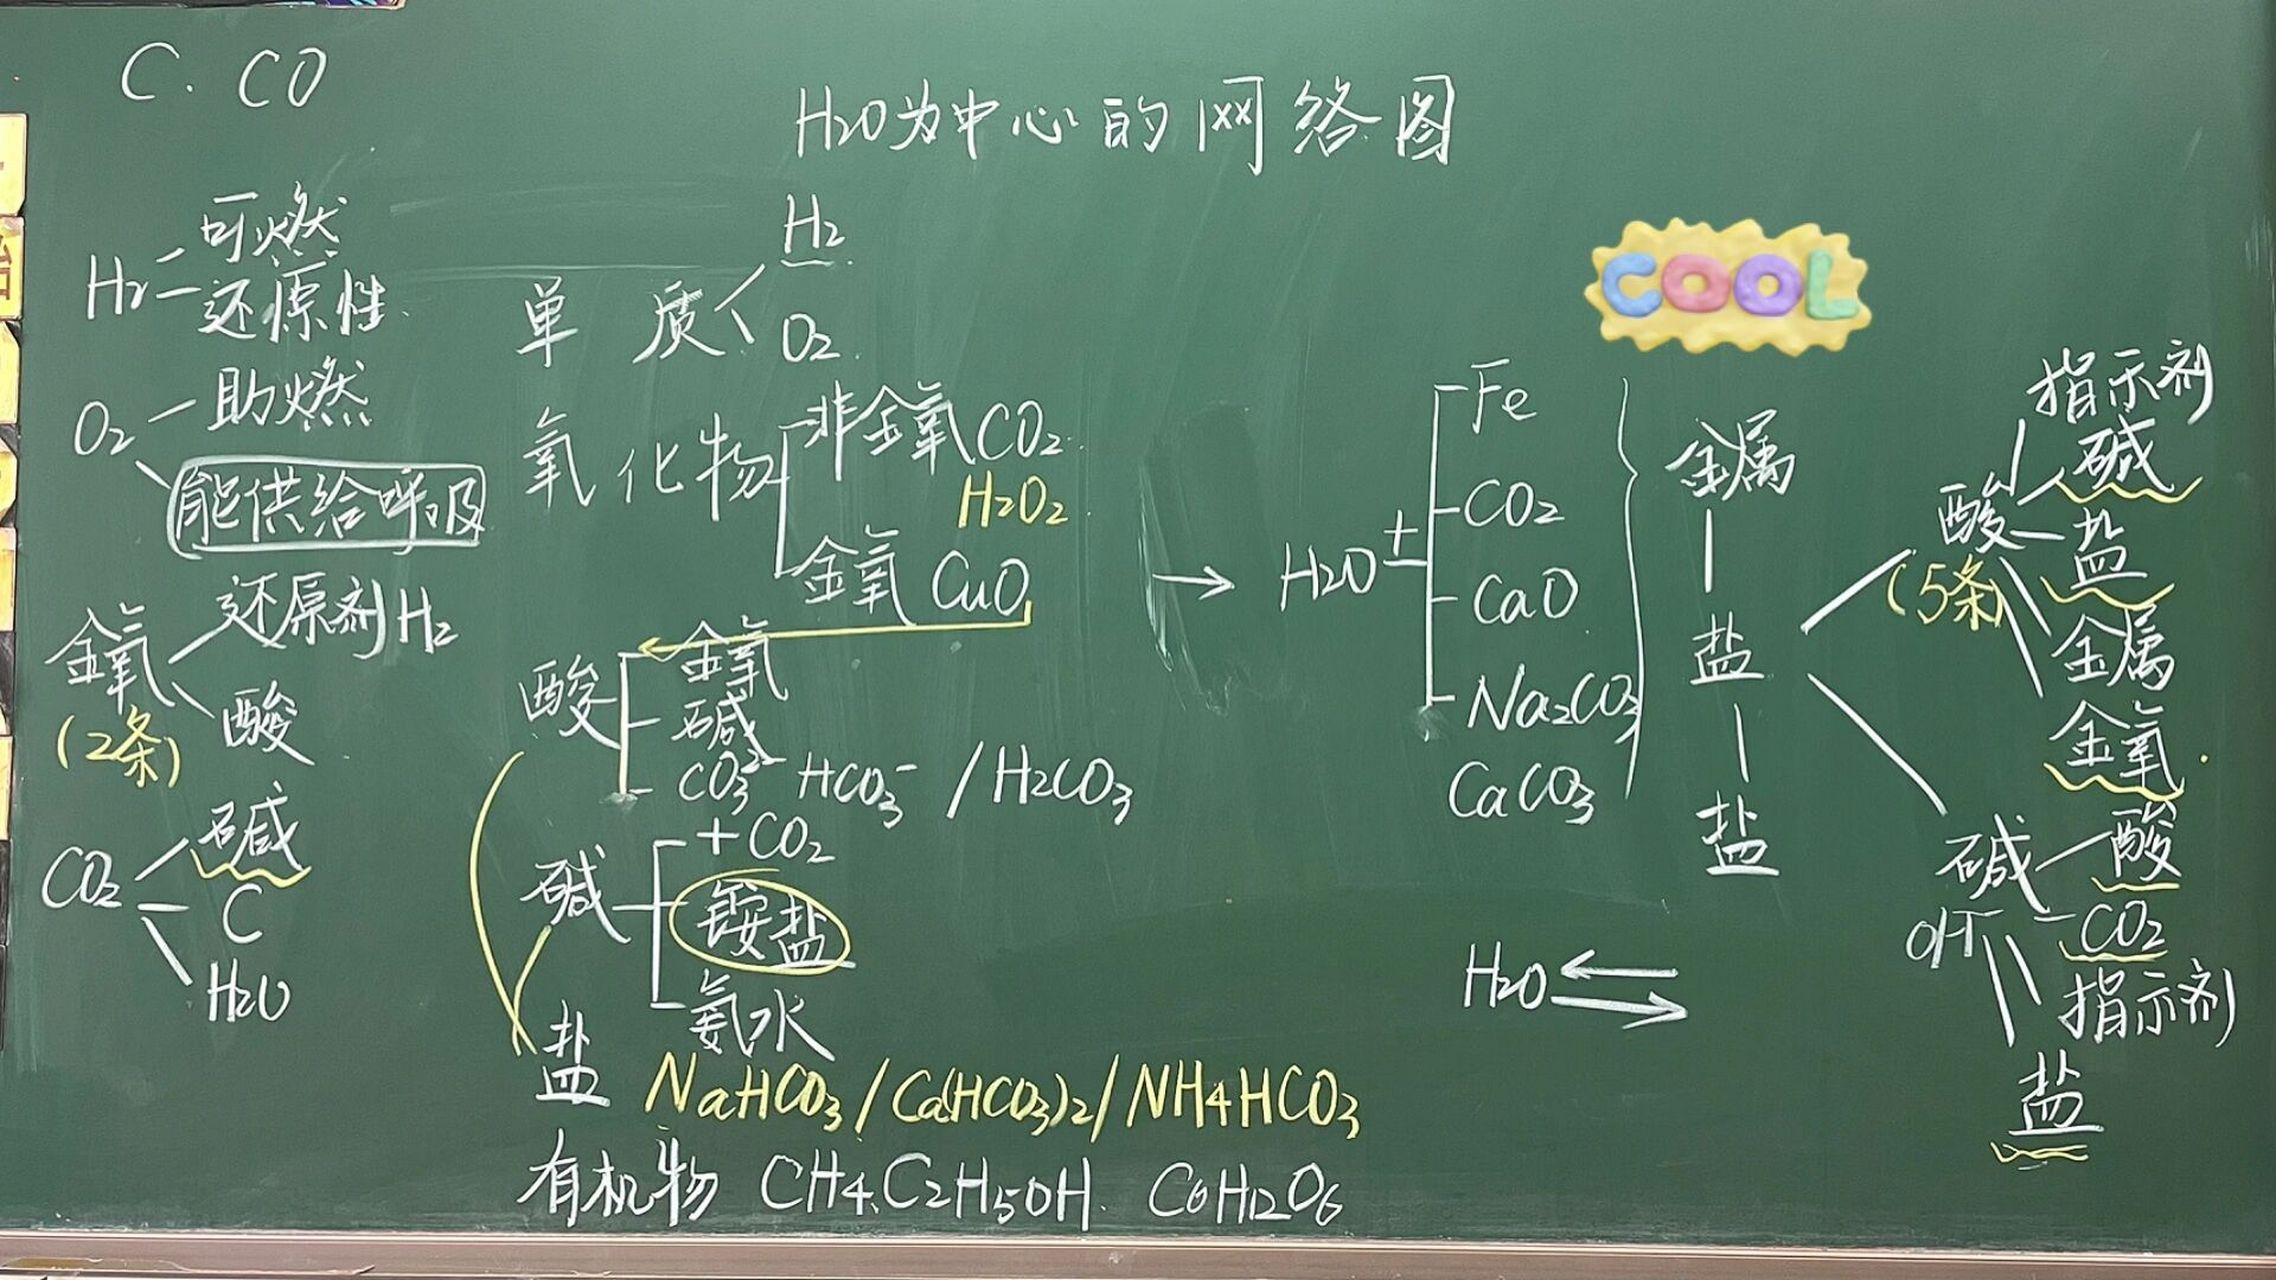 C. CO
H2O为中心的网络图
H2 可燃
还原性
O2 助燃
能供给呼吸
金氧 还原剂H2
(2条) 酸
CO2 碱
C
H2O
单质 H2
O2
氧化物 非金氧 CO2
H2O2
金氧 CuO
酸 金氧
碱
CO3²⁻ HCO3⁻ / H2CO3
碱 +CO2
铵盐
氨水
盐 NaHCO3/Ca(HCO3)2/NH4HCO3
有机物 CH4.C2H5OH. C6H12O6
→ H2O + Fe
CO2
CaO
Na2CO3
CaCO3
COOL
金属
盐
盐
H2O
酸 指示剂
(5条) 碱
盐
金属
金氧
碱 酸
OH⁻ CO2
指示剂
盐